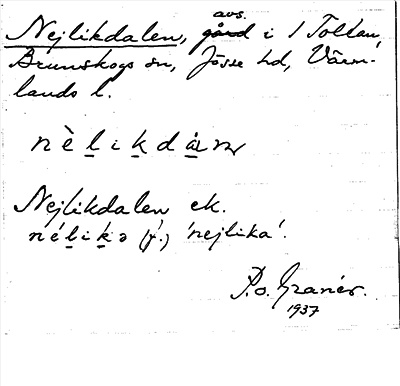 avs.
Nejlikdalen, gård i 1 Tolltan,
Brunskogs sn, Jösse hd, Värm-
lands l.
nè̀likdán
Nejlikdalen ek.
nélikə (f.) 'nejlika'.
P.o. Granér.
1937